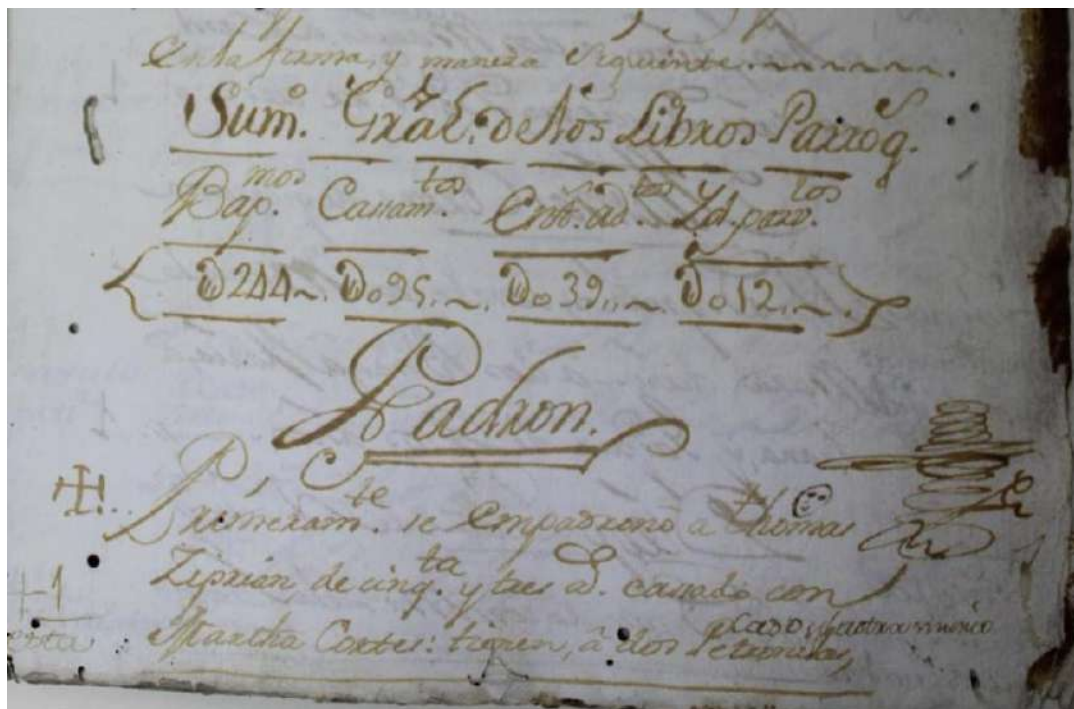 En la forma, y manera siguiente
Sum.º Gral. de los Libros Parroq.s
Bap.mos Casam.tos Ent. ad.tos Yd. parv.los
D 244 ~. Do 95 .. ~. Do 39 .. ~ Do 12 .. ~ .
Padron.
Primeram.te se empadrono a Thomas
Ziprian, de cinq.ta y tres a.s casado, con
+1
Martha Cortes: tienen, â los